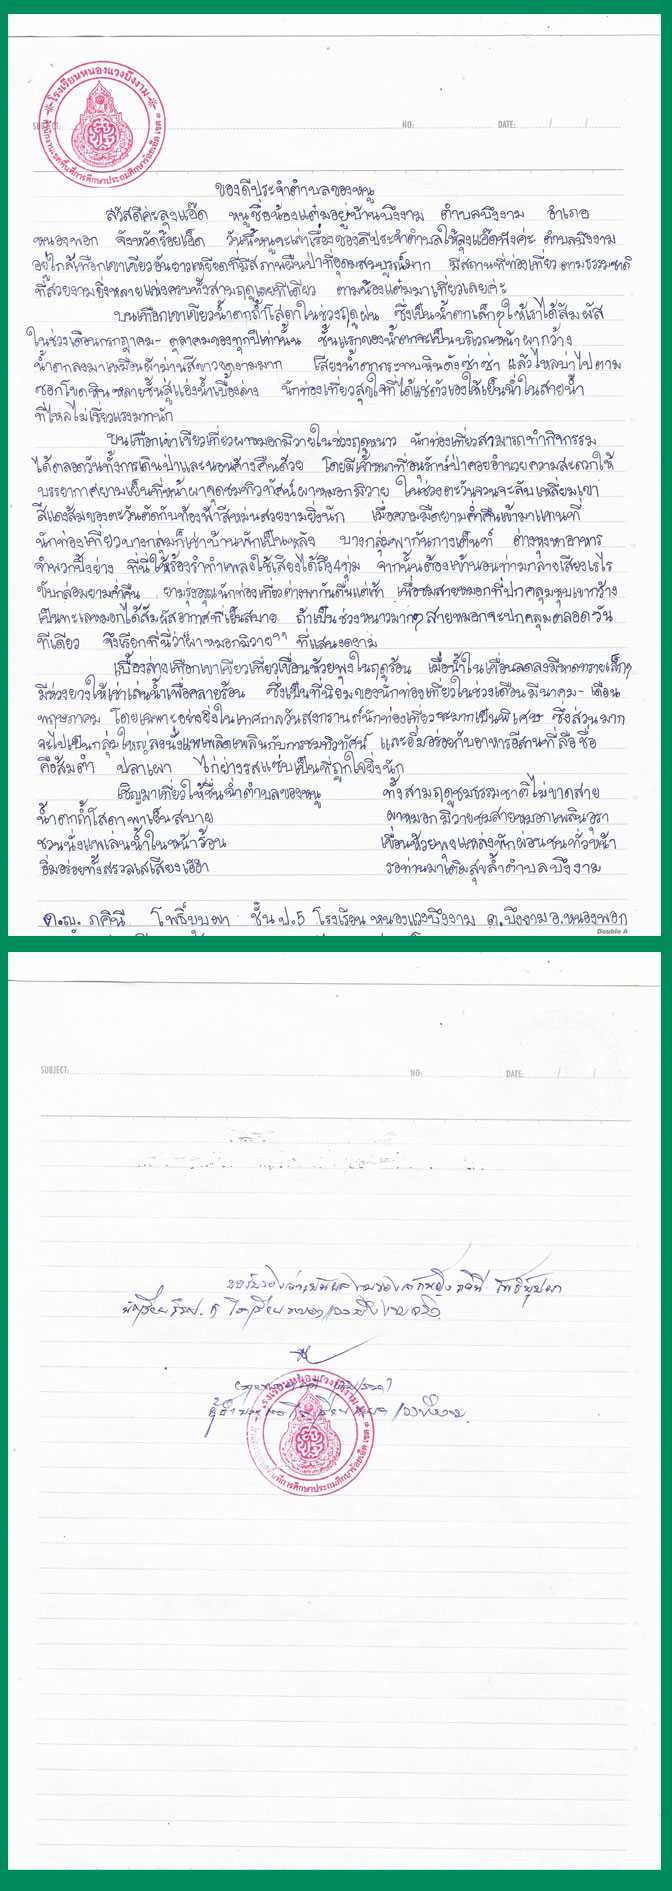 โรงเรียนหนองแวงบึงงาม
สำนักงานเขตพื้นที่การศึกษาประถมศึกษาร้อยเอ็ด เขต ๓
SUBJECT: NO: DATE: / /
ของดีประจำตำบลของหนู
สวัสดีค่ะลุงแอ๊ด หนูชื่อน้องแต๋มอยู่บ้านบึงงาม ตำบลบึงงาม อำเภอ
หนองพอก จังหวัดร้อยเอ็ด วันนี้หนูจะเล่าเรื่องของดีประจำตำบลให้ลุงแอ๊ดฟังค่ะ ตำบลบึงงาม
อยู่ใกล้เทือกเขาเขียวอันยาวเหยียดที่มีสภาพผืนป่าที่อุดมสมบูรณ์มาก มีสถานที่ท่องเที่ยวตามธรรมชาติ
ที่สวยงามยิ่งหลายแห่งครบทั้งสามฤดูเลยทีเดียว ตามน้องแต๋มมาเที่ยวเลยค่ะ
บนเทือกเขาเขียวน้ำตกถ้ำโสดาในช่วงฤดูฝน ซึ่งเป็นน้ำตกเล็กๆให้เราได้สัมผัส
ในช่วงเดือนกรกฎาคม- ตุลาคมของทุกปีเท่านั้น ชั้นแรกของน้ำตกจะเป็นบริเวณหน้าผากว้าง
น้ำตกลงมาเหมือนผ้าม่านสีขาวดูงามมาก เสียงน้ำตกกระทบหินดังซ่าซ่า แล้วไหลบ่าไปตาม
ซอกโขดหินหลายชั้นสู่แอ่งน้ำเบื้องล่าง นักท่องเที่ยวสุขใจที่ได้แช่ตัวเองให้เย็นฉ่ำในสายน้ำ
ที่ไหลไม่เชี่ยวแรงมากนัก
บนเทือกเขาเขียวเที่ยวผาหมอกมิวายในช่วงฤดูหนาว นักท่องเที่ยวสามารถทำกิจกรรม
ได้ตลอดวันทั้งการเดินป่าและนอนค้างคืนด้วย โดยมีเจ้าหน้าที่อนุรักษ์ป่าคอยอำนวยความสะดวกให้
บรรยากาศยามเย็นที่หน้าผาจุดชมทิวทัศน์ผาหมอกมิวาย ในช่วงตะวันจวนจะลับเหลี่ยมเขา
สีแดงส้มของตะวันตัดกับท้องฟ้าสีหม่นสวยงามยิ่งนัก เมื่อความมืดยามค่ำคืนเข้ามาแทนที่
นักท่องเที่ยวบางกลุ่มก็เช่าบ้านพักเป็นหลัง บางกลุ่มพากันกางเต็นท์ ต่างหุงหาอาหาร
จำพวกปิ้งย่าง ที่นี่ให้ร้องรำทำเพลงใช้เสียงได้ถึง4ทุ่ม จากนั้นต้องเข้านอนท่ามกลางเสียงเรไร
ขับกล่อมยามค่ำคืน ยามรุ่งอรุณนักท่องเที่ยวต่างพากันตื่นแต่เช้า เพื่อชมสายหมอกที่ปกคลุมหุบเขากว้าง
เป็นทะเลหมอกได้สัมผัสอากาศที่เย็นสบาย ถ้าเป็นช่วงหนาวมากๆสายหมอกจะปกคลุมตลอดวัน
ทีเดียว จึงเรียกที่นี่ว่า"ผาหมอกมิวาย" ที่แสนงดงาม
เบื้องล่างเทือกเขาเขียวเที่ยวเขื่อนห้วยพุงในฤดูร้อน เมื่อน้ำในเขื่อนลดลงมีหาดทรายเล็กๆ
มีห่วงยางให้เช่าเล่นน้ำเพื่อคลายร้อน ซึ่งเป็นที่นิยมของนักท่องเที่ยวในช่วงเดือนมีนาคม- เดือน
พฤษภาคม โดยเฉพาะอย่างยิ่งในเทศกาลวันสงกรานต์นักท่องเที่ยวจะมากเป็นพิเศษ ซึ่งส่วนมาก
จะไปเป็นกลุ่มใหญ่ลงนั่งแพเพลิดเพลินกับการชมทิวทัศน์ และอิ่มอร่อยกับอาหารอีสานที่ลือชื่อ
คือส้มตำ ปลาเผา ไก่ย่างรสแซ่บเป็นที่ถูกใจยิ่งนัก
เชิญมาเที่ยวให้ชื่นฉ่ำตำบลของหนู ทั้งสามฤดูชมธรรมชาติไม่ขาดสาย
น้ำตกถ้ำโสดาพาเย็นสบาย ผาหมอกมิวายชมสายหมอกเพลินอุรา
ชวนนั่งแพเล่นน้ำในหน้าร้อน เขื่อนห้วยพุงแหล่งพักผ่อนชนทั่วหน้า
อิ่มอร่อยทั้งสรวลเสเสียงเฮฮา รอท่านมาเติมสุขล้ำตำบลบึงงาม
ด.ญ. ภคินี โพธิ์บุบผา ชั้น ป.5 โรงเรียนหนองแวงบึงงาม ต.บึงงาม อ.หนองพอก
Double A
SUBJECT: NO: DATE: / /
ขอรับรองว่าเป็นผลงานของเด็กหญิง ภคินี โพธิ์บุบผา
โรงเรียนหนองแวงบึงงาม
สำนักงานเขตพื้นที่การศึกษาประถมศึกษาร้อยเอ็ด เขต ๓